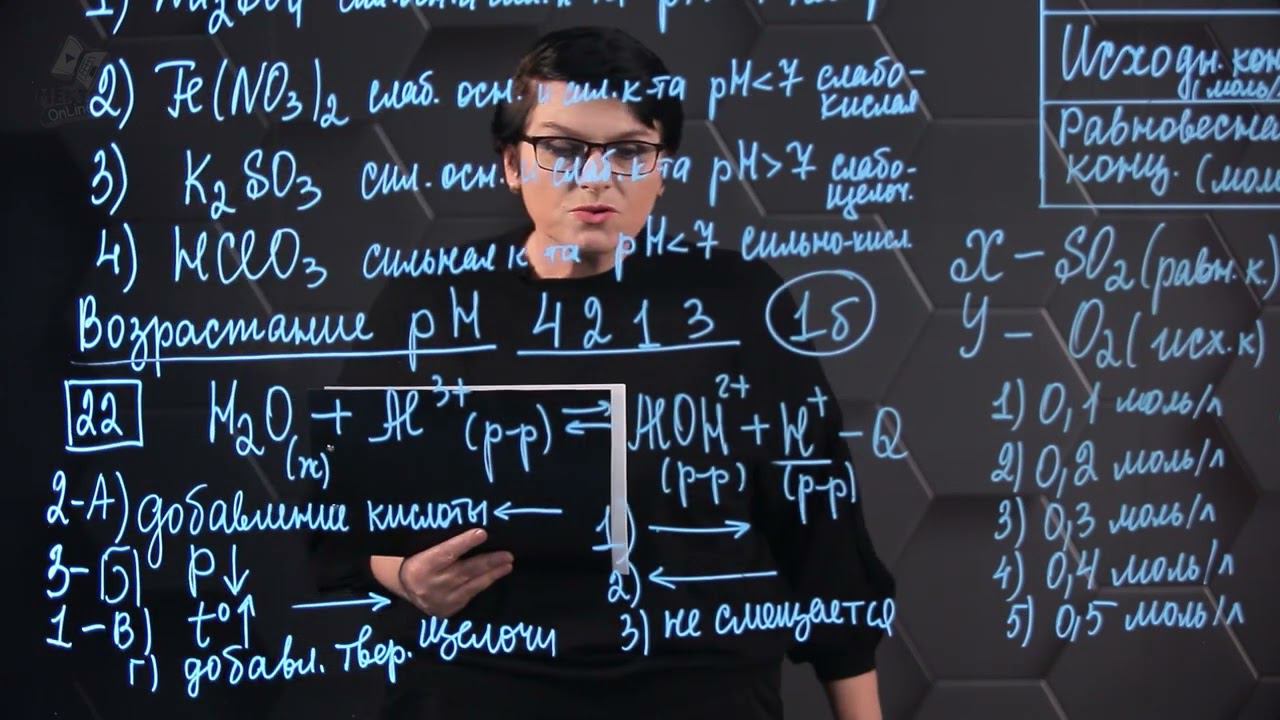 1) Na2SO4
2) Fe(NO3)2 слаб. осн. и сил. к-та pH<7 слабо-
кислая
3) K2SO3 сил. осн. и слаб. к-та pH>7 слабо-
щелоч.
4) HClO3 сильная к-та pH<7 сильно-кисл.
Возрастание pH 4 2 1 3 1б
22 H2O(ж) + Al3+(р-р) ⇄ AlOH2+(р-р) + H+(р-р) – Q
2-А) добавление кислоты ← 1) →
3-Б) p↓ 2) ←
1-В) t°↑ → 3) не смещается
г) добавл. твер. щелочи
Исходн. кон
(моль/
Равновесна
конц. (мол
X – SO2 (равн. к)
У – O2 (исх. к)
1) 0,1 моль/л
2) 0,2 моль/л
3) 0,3 моль/л
4) 0,4 моль/л
5) 0,5 моль/л
OnLine